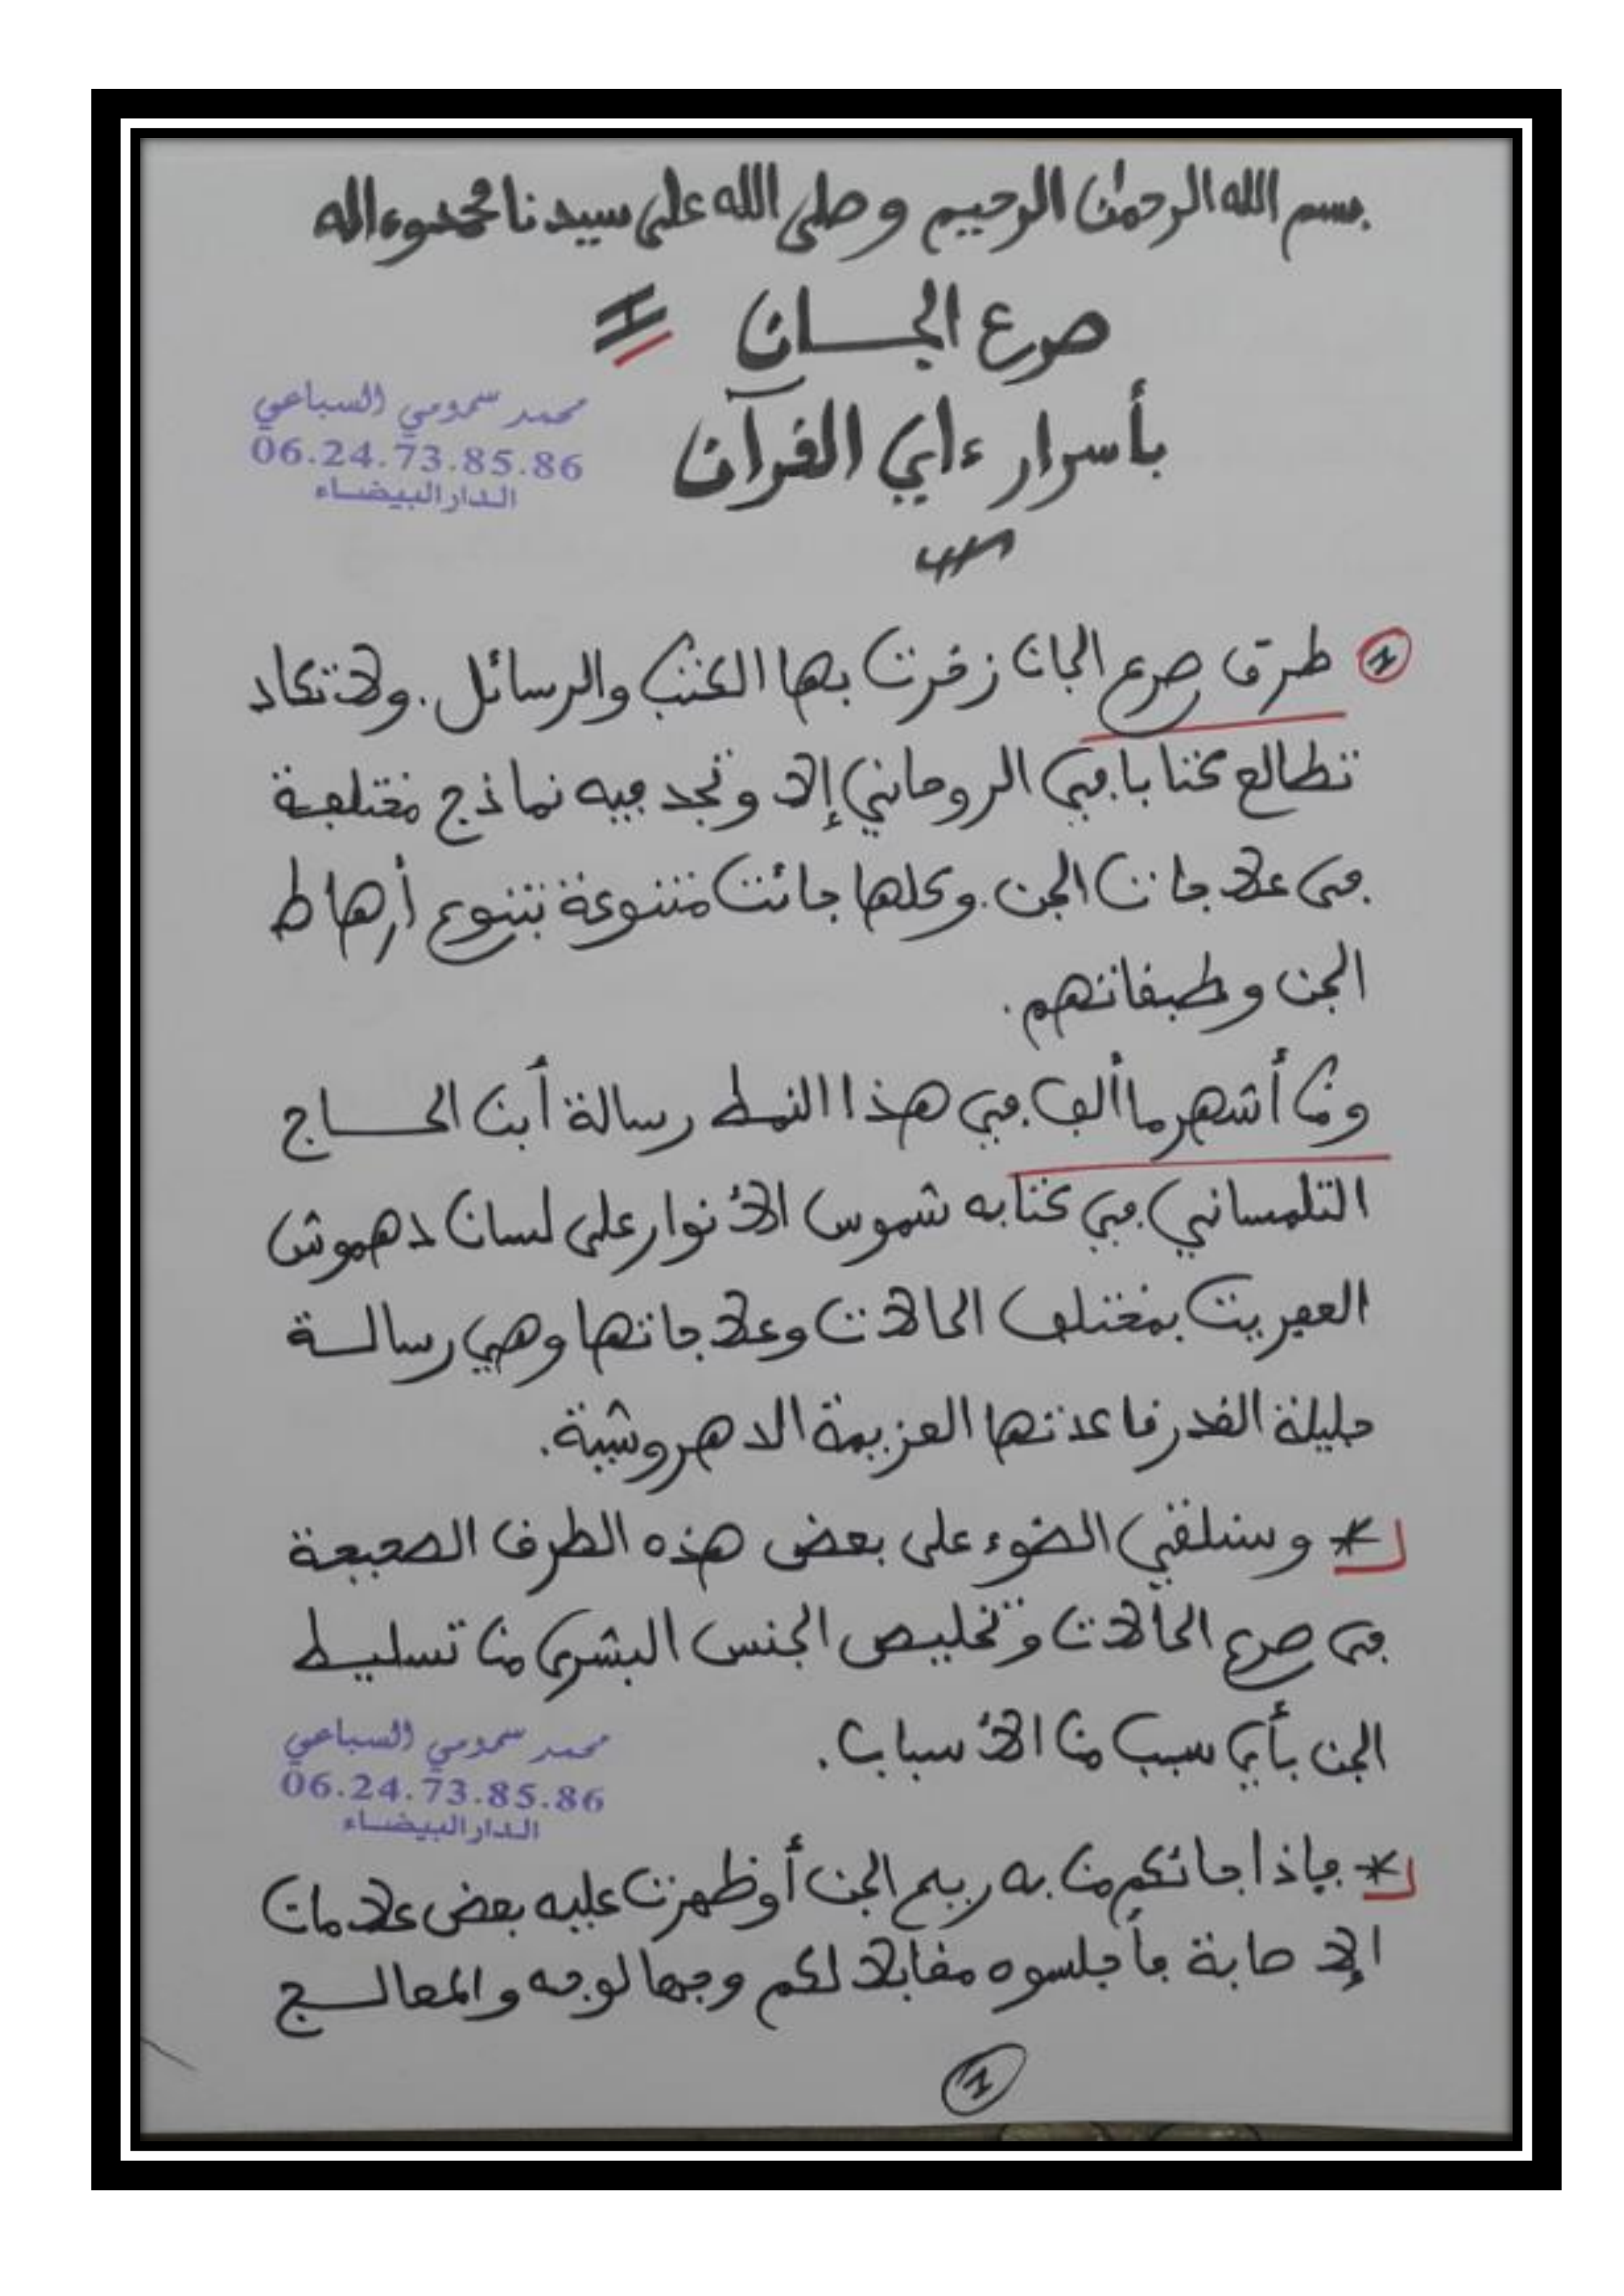 بسم الله الرحمٰن الرحيم وصلى الله على سيدنا محمد وءاله
صرع الجـــان 1
بأسرار ءاي القرآن
محمد سمومي السباعي
06.24.73.85.86
الدار البيضاء
1 طرق صرع الجان زخرت بها الكتب والرسائل. ولا تكاد
تطالع كتابا في الروحاني إلا وتجد فيه نماذج مختلفة
في علاجات الجن. وكلها جائت متنوعة بتنوع أرهاط
الجن وطبقاتهم.
ومن أشهر ما ألف في هذا النمط رسالة أبن الحـــاج
التلمساني في كتابه شموس الأنوار على لسان دهموش
العفريت بمختلف الحالات وعلاجاتها وهي رسالـــة
جليلة القدر قاعدتها العزيمة الدهروشية.
* وسنلقي الضوء على بعض هذه الطرق الصحيحة
في صرع الحالات وتخليص الجنس البشري من تسليط
الجن بأي سبب من الأسباب.
محمد سمومي السباعي
06.24.73.85.86
الدار البيضاء
* فإذا جائكم من به ريح الجن أو ظهرت عليه بعض علامات
الإصابة فأجلسوه مقابلا لكم وجها لوجه والمعالـــج
1